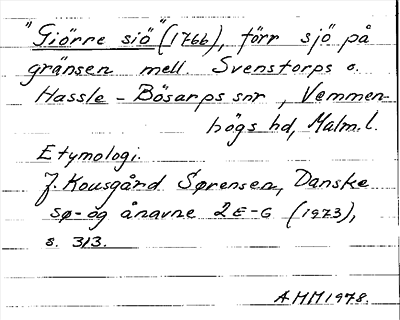 "Giörre siö" (1766), förr sjö på
gränsen mell. Svenstorps o.
Hassle-Bösarps snr, Vemmen-
högs hd, Malm. l.
Etymologi:
J. Kousgård Sørensen, Danske
sø- og ånavne 2 E-G (1973),
s. 313.
AMM 1978.